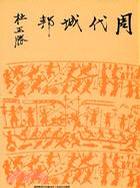 周代城邦
杜正勝